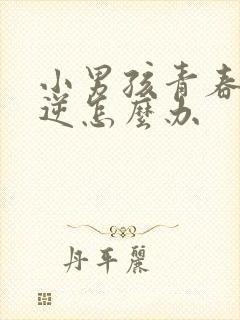 小男孩青春
逆怎麼办
丹平麗